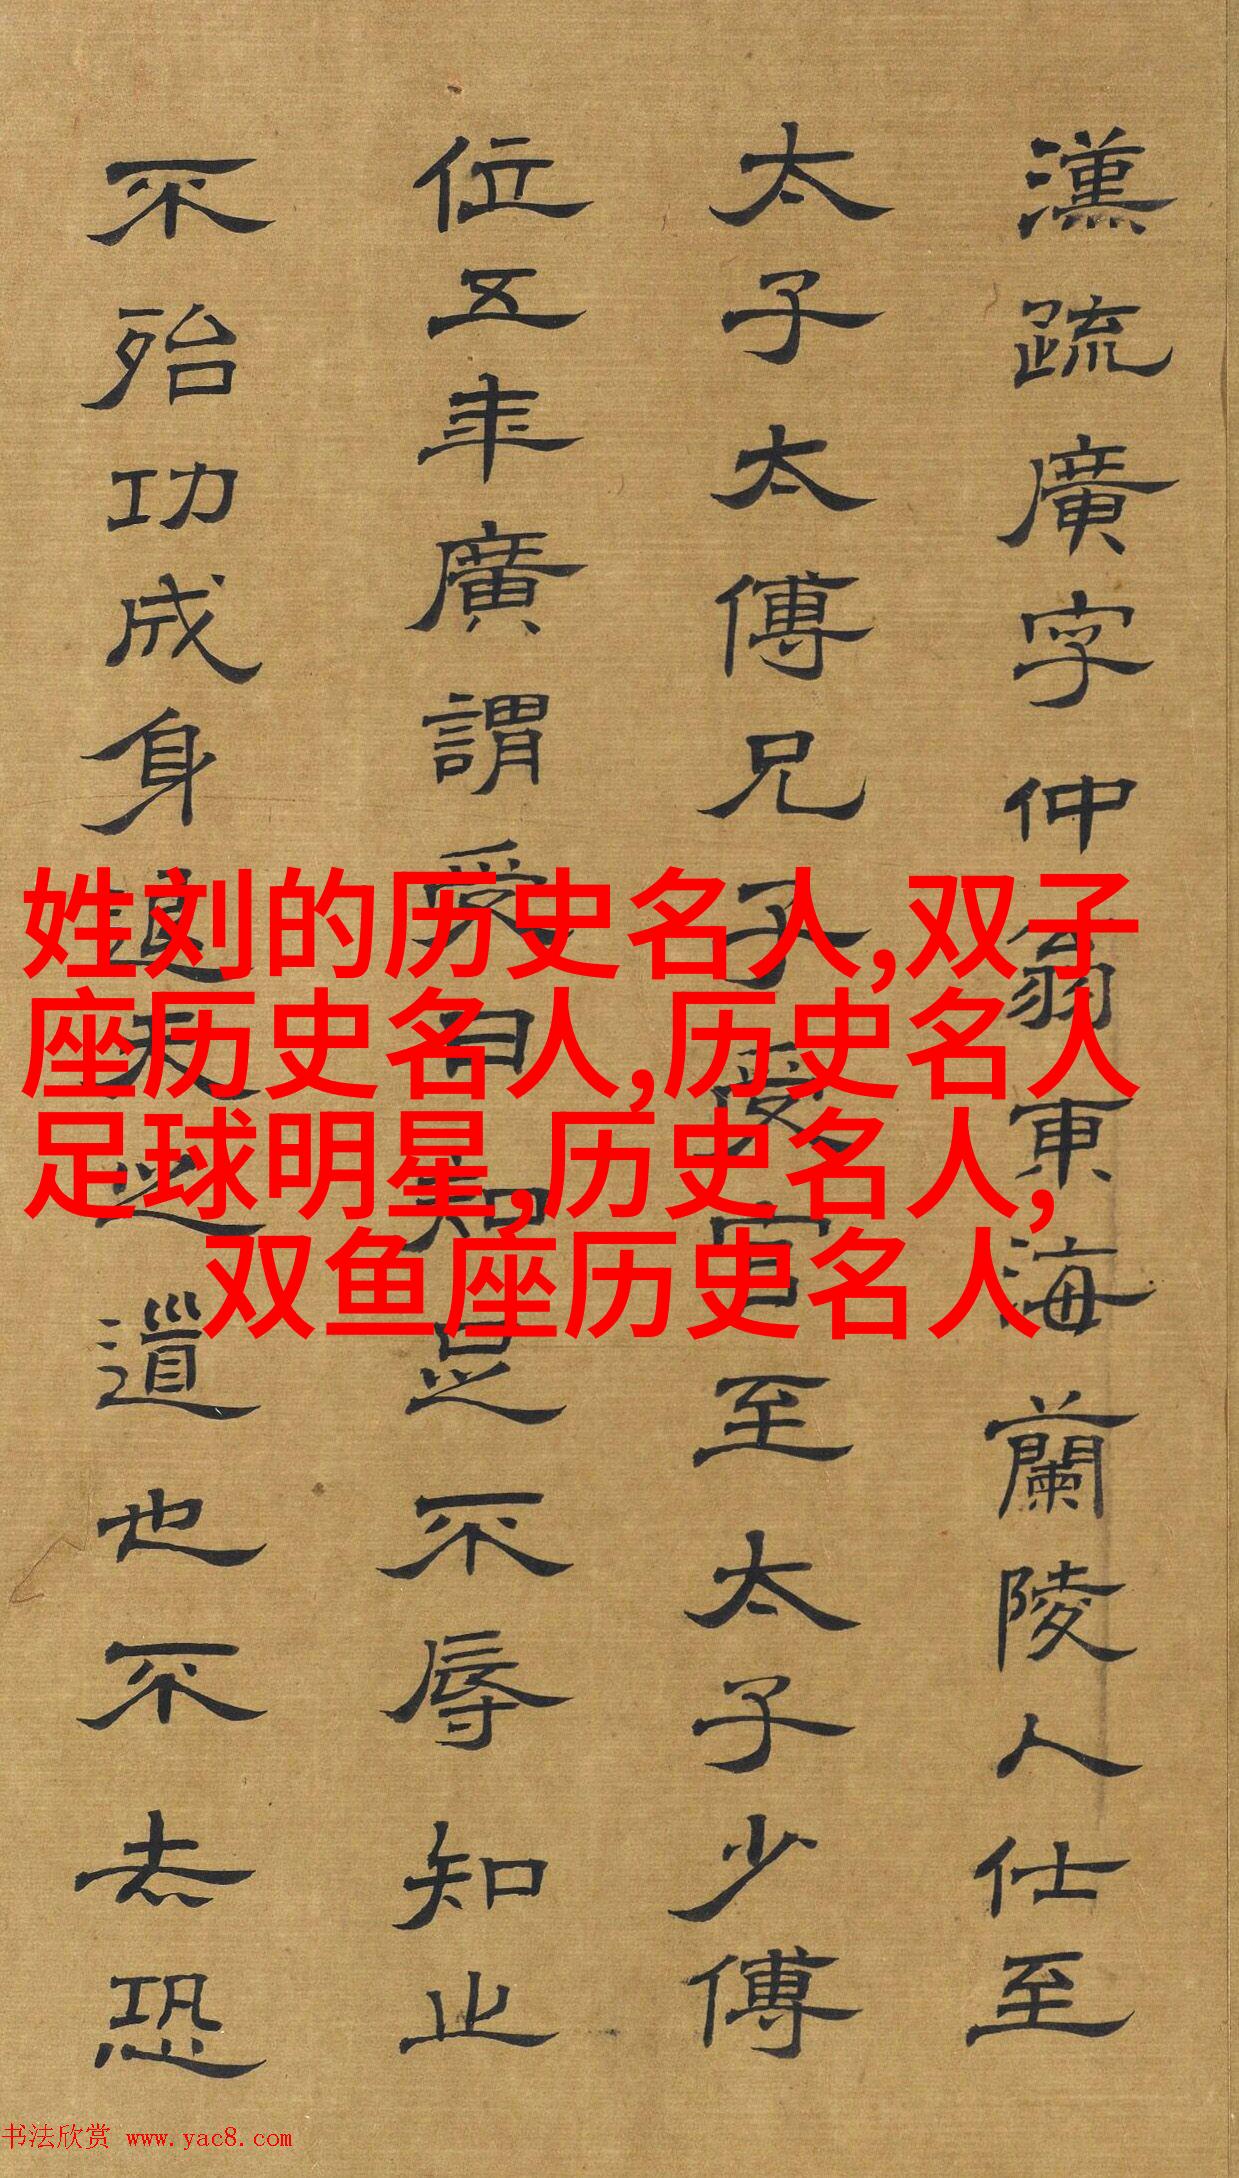 漢疏廣字仲翁東海蘭陵人仕至
太子太傅兄子受官至太子少傅
位五年廣謂受曰知足不辱知止
不殆功成身退天之道也不去恐
姓刘的历史名人,双子
座历史名人,历史名人
足球明星,历史名人,
双鱼座历史名人
书法欣赏 www.yac8.com